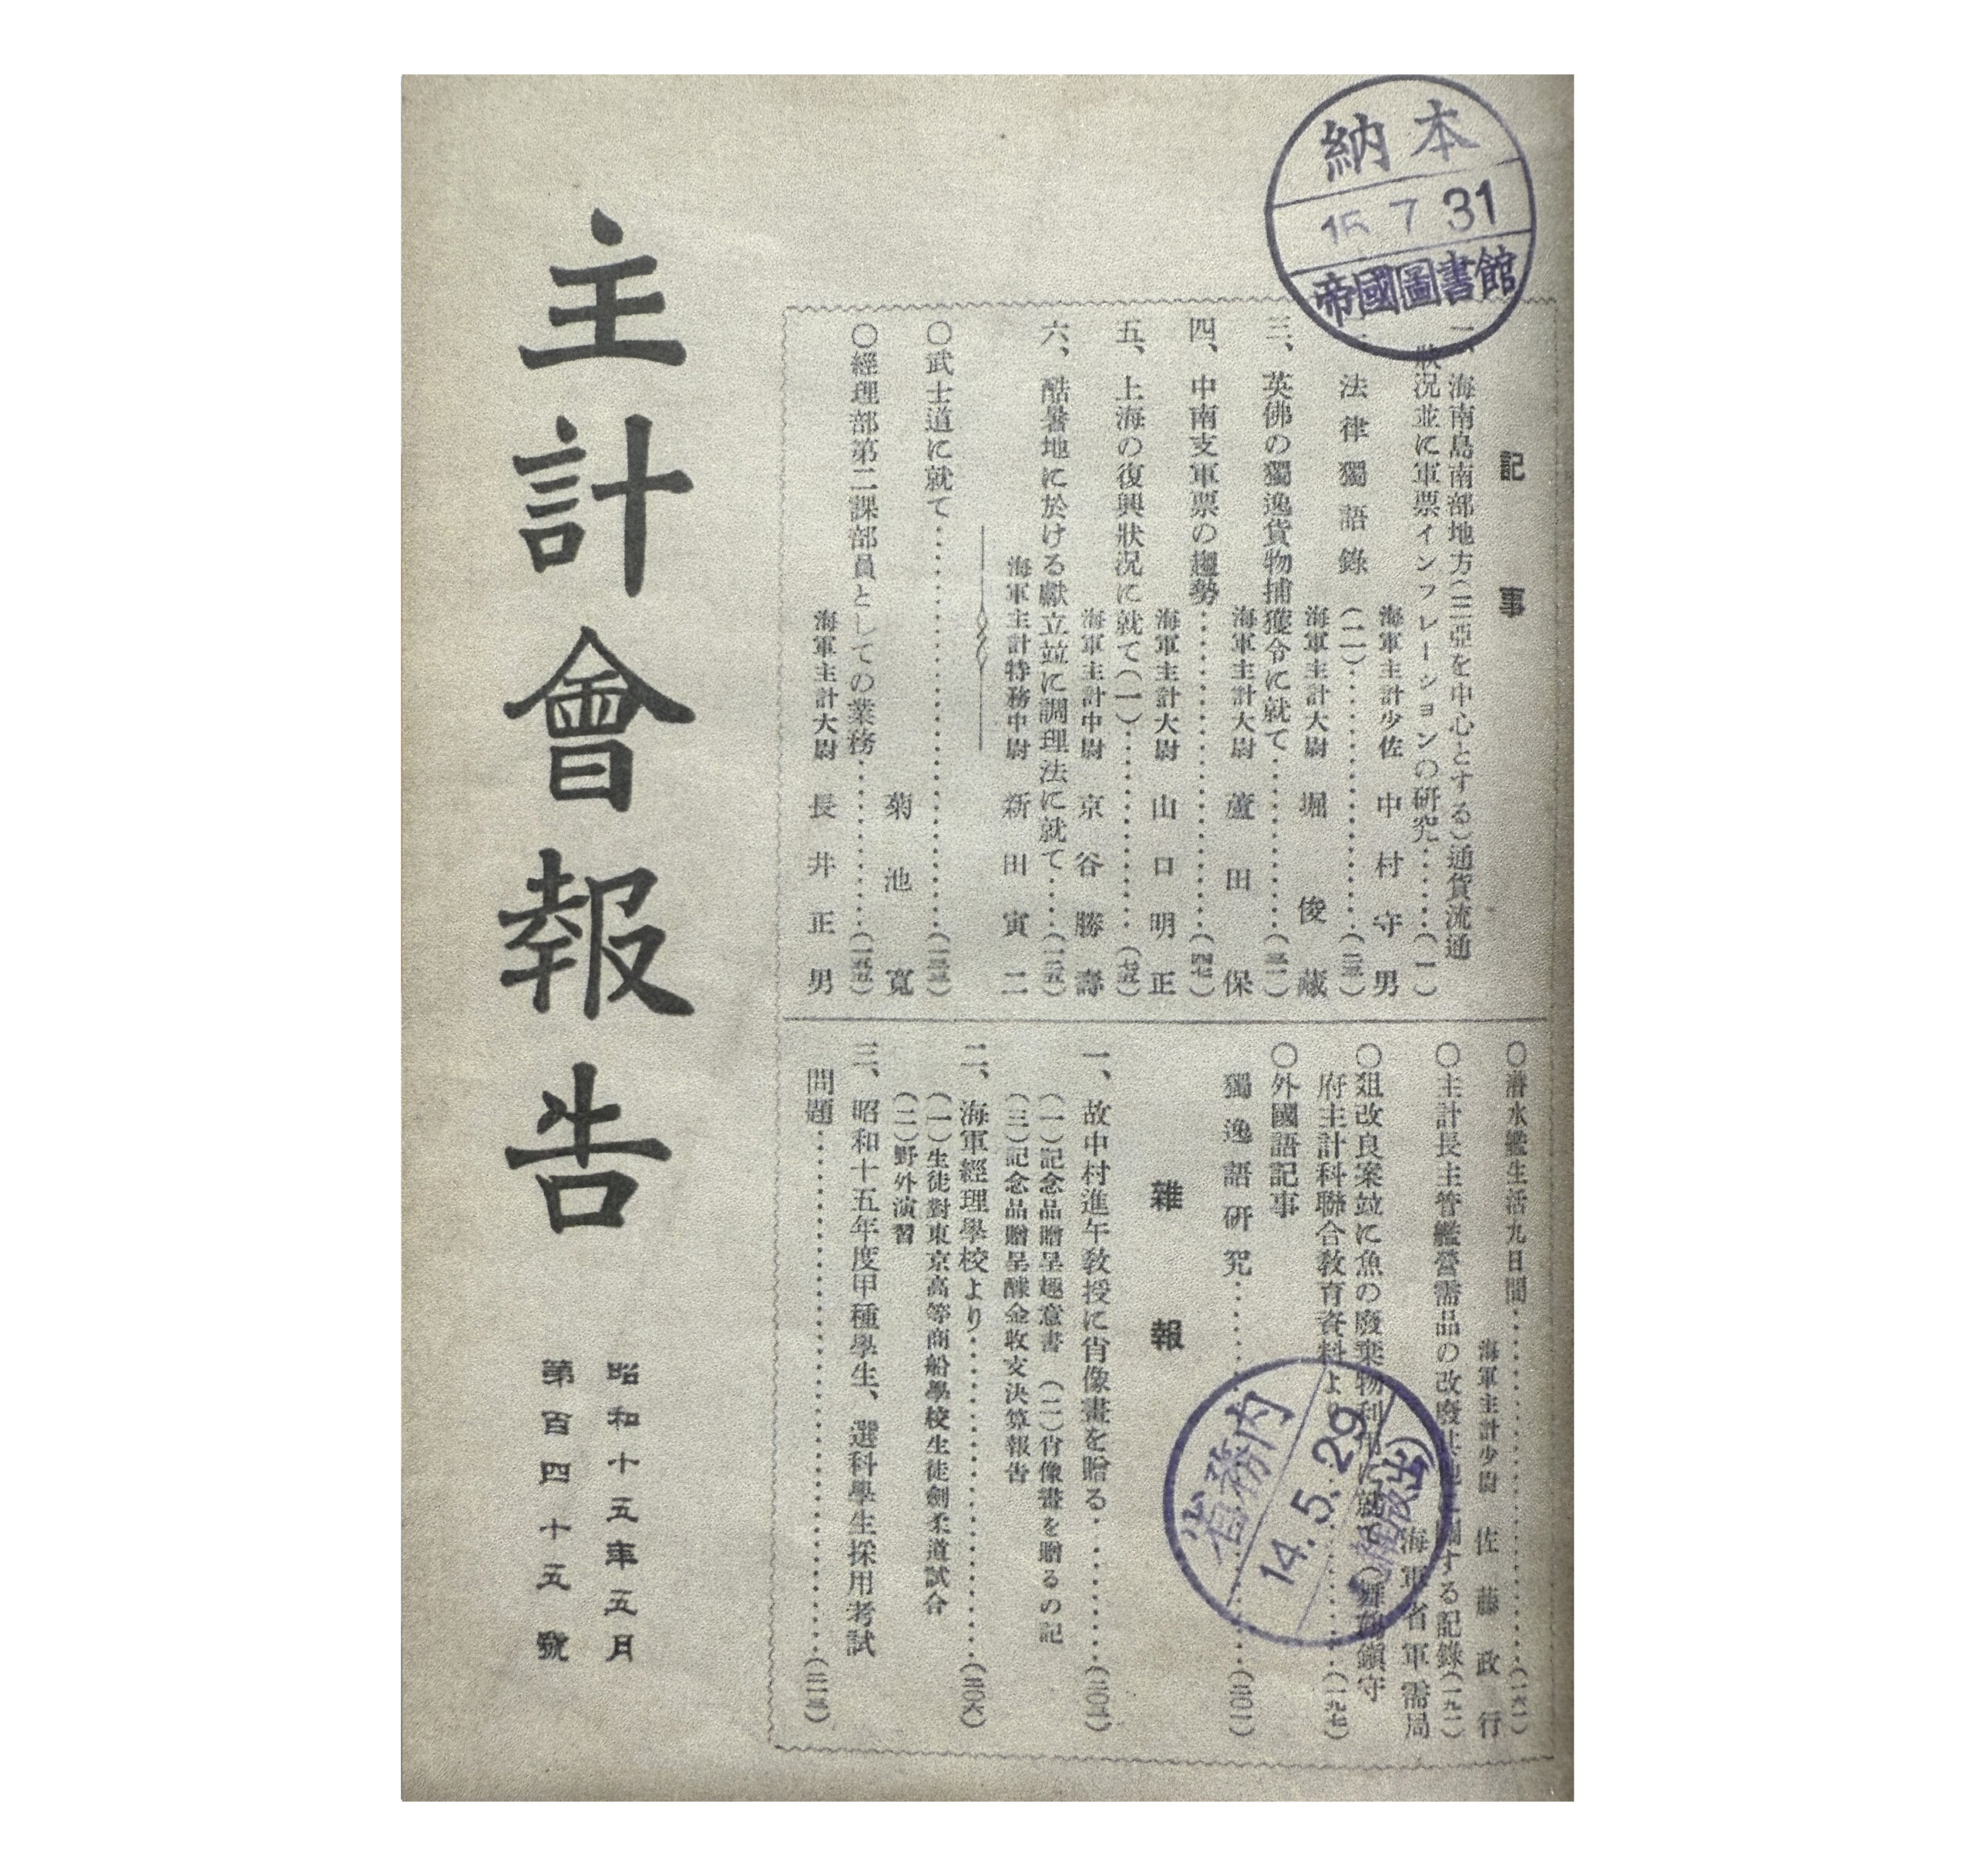 納本
15 7 31
帝國圖書館
記事
一、海南島南部地方(三亞を中心とする)通貨流通
狀況並に軍票インフレーションの研究……(一)
海軍主計少佐 中村守男
二、法律獨語錄(二)……
海軍主計大尉 堀俊藏
三、英佛の獨逸貨物捕獲令に就て……
海軍主計大尉 蘆田保
四、中南支軍票の趨勢……(四七)
海軍主計大尉 山口明正
五、上海の復興狀況に就て(一)……(七五)
海軍主計中尉 京谷勝壽
六、酷暑地に於ける獻立竝に調理法に就て……
海軍主計特務中尉 新田寅二
〇武士道に就て……
菊池寬
〇經理部第二課部員としての業務……
海軍主計大尉 長井正男
〇潛水艦生活九日間……(一六一)
海軍主計少尉 佐藤政行
〇主計長主管艦營需品の改廢其他に關する記錄(一九一)
海軍省軍需局
〇爼改良案竝に魚の廢棄物利用に就て(舞鶴鎭守
府主計科聯合敎育資料より)……(一九七)
〇外國語記事
獨逸語硏究……(二〇一)
雜報
一、故中村進午敎授に肖像畫を贈る……
(一)記念品贈呈趣意書 (二)肖像畫を贈るの記
(三)記念品贈呈醵金收支決算報告
二、海軍經理學校より……(二〇六)
(一)生徒對東京高等商船學校生徒劍柔道試合
(二)野外演習
三、昭和十五年度甲種學生、選科學生採用考試
問題……
內務省
14.5.29
主計會報告
昭和十五年五月
第百四十五號